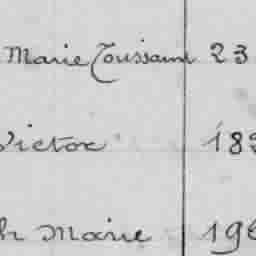 Marie Toussaint 23
Victor 183
h Marie 196